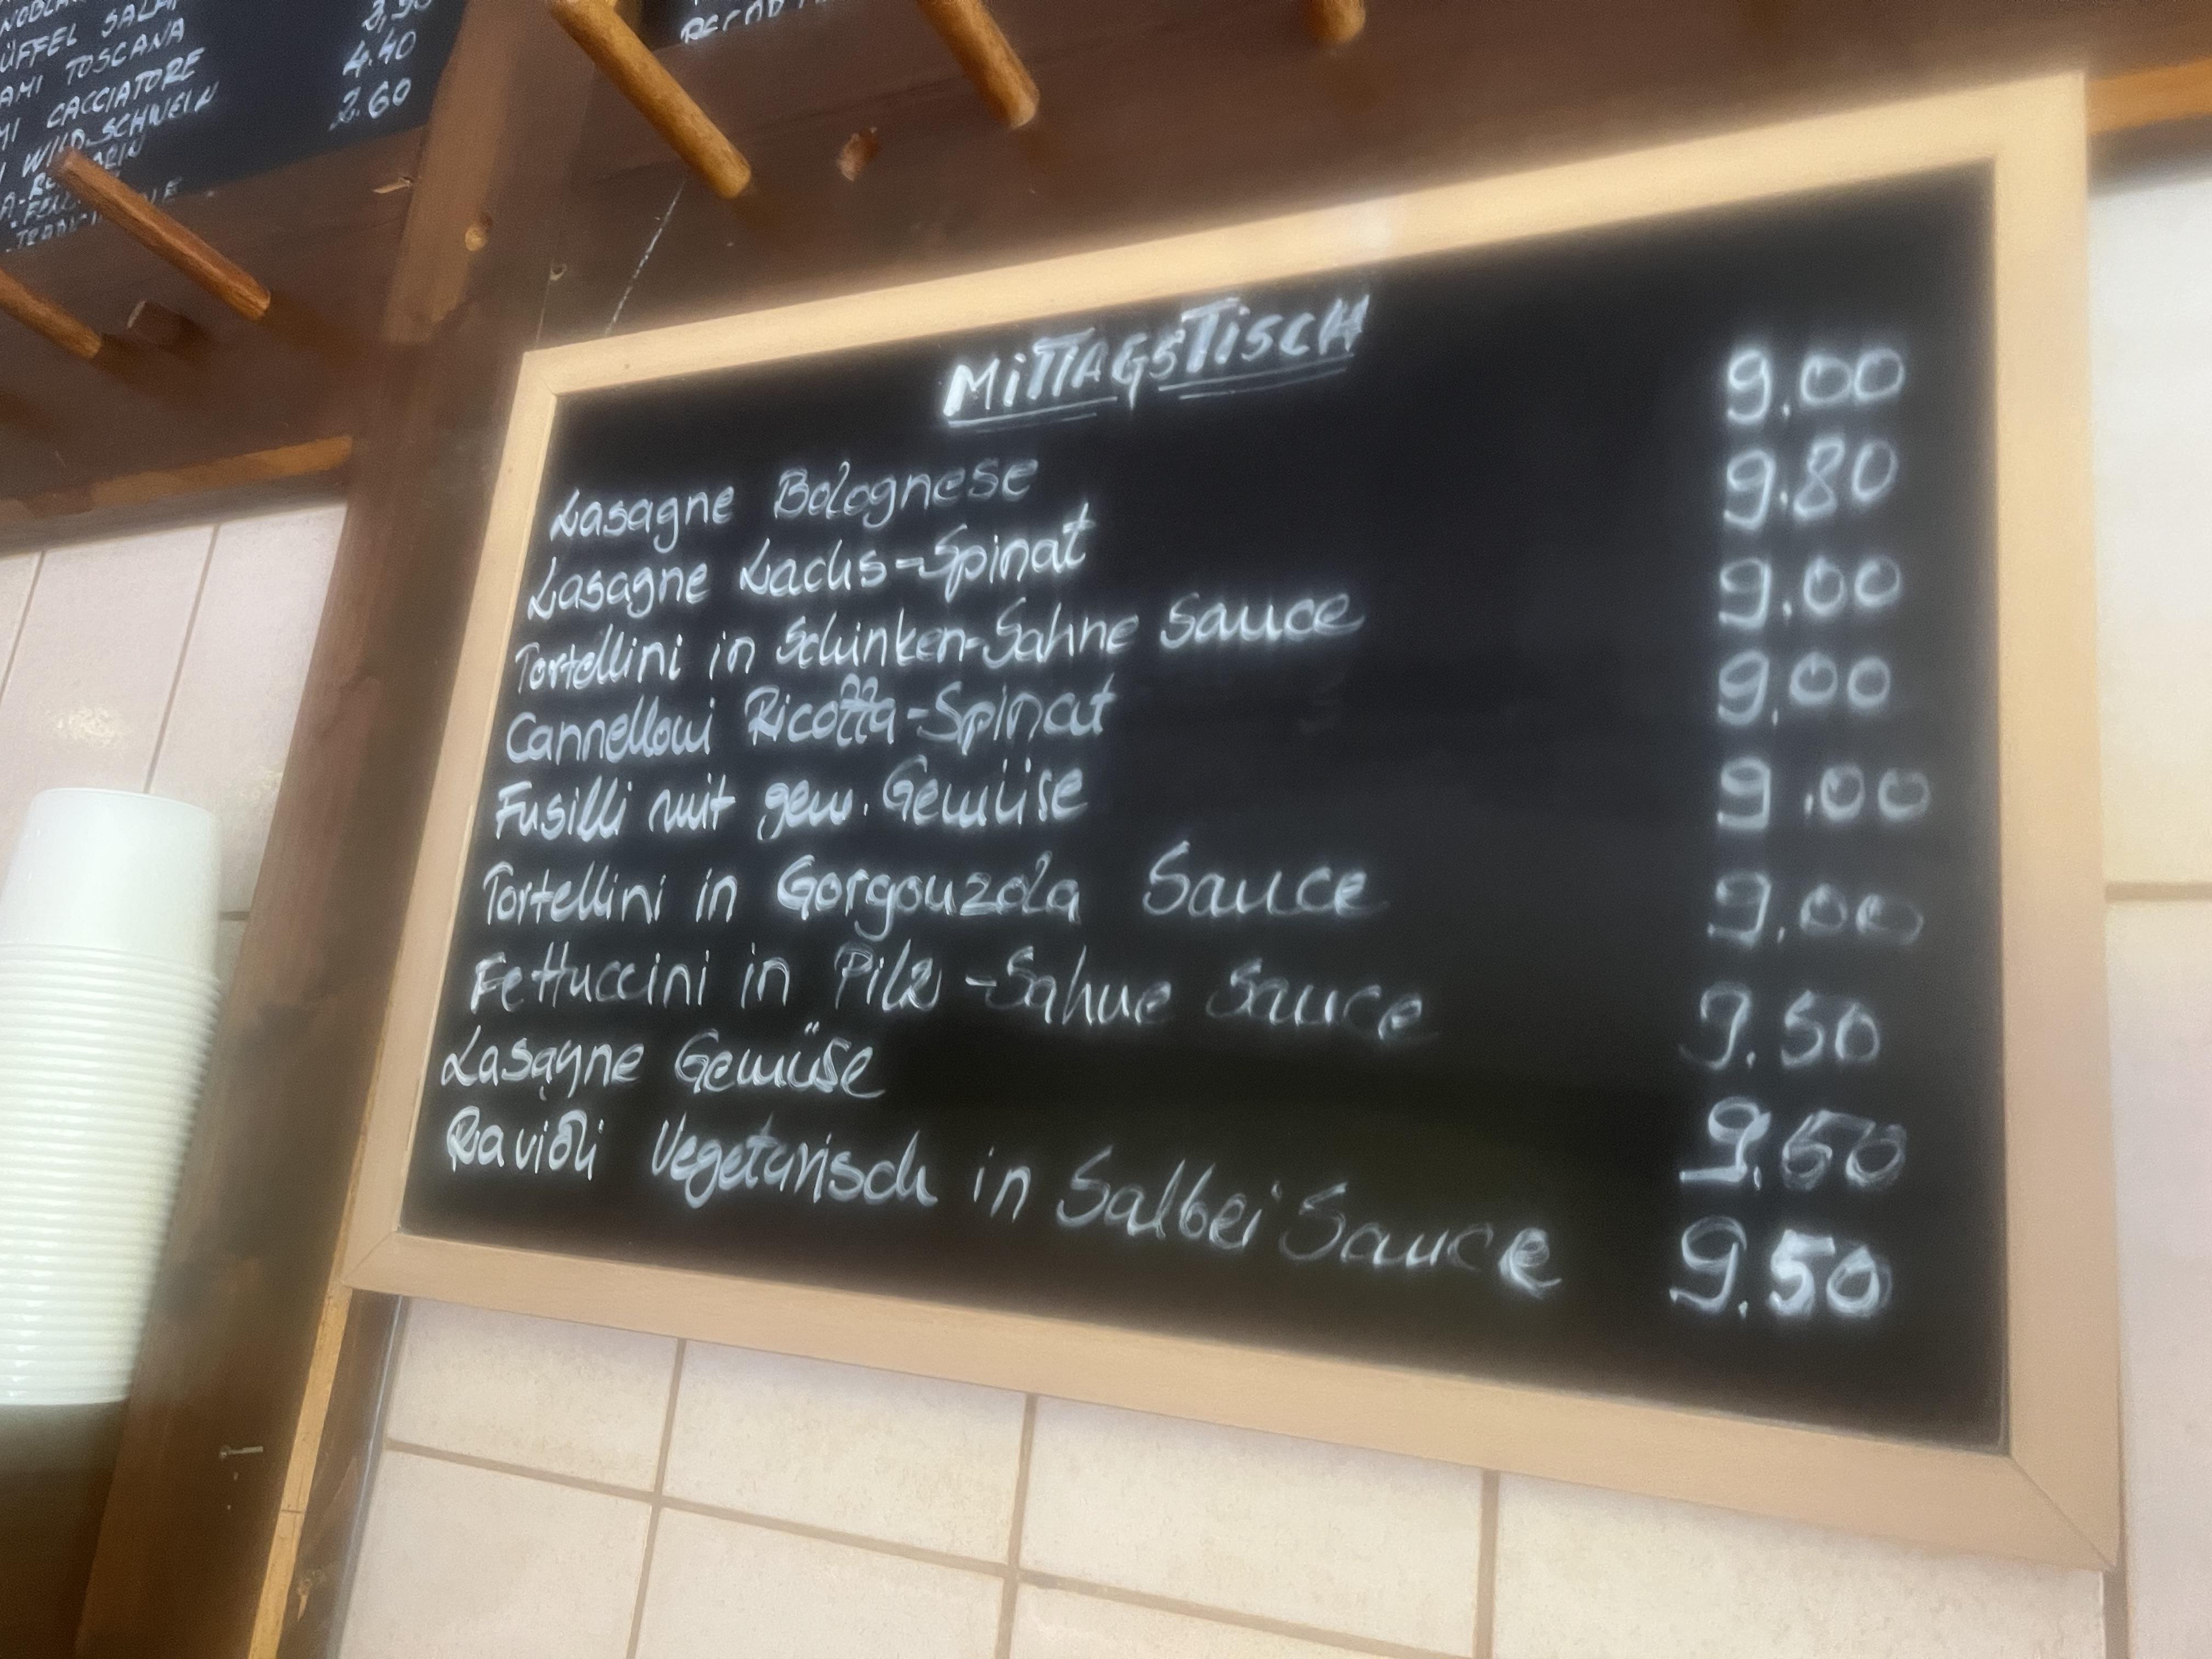 SALAMI
ÜFFEL
AMI TOSCANA 4.40
MI CACCIATORE 2.60
WILDSCHWEIN
MITTAGSTISCH
Lasagne Bolognese 9.00
Lasagne Lachs-Spinat 9.80
Tortellini in Schinken-Sahne Sauce 9.00
Cannelloni Ricotta-Spinat 9.00
Fusilli mit gem. Gemüse 9.00
Tortellini in Gorgonzola Sauce 9.00
Fettuccini in Pilz-Sahne Sauce 9.50
Lasagne Gemüse 9.50
Ravioli Vegetarisch in Salbei Sauce 9.50